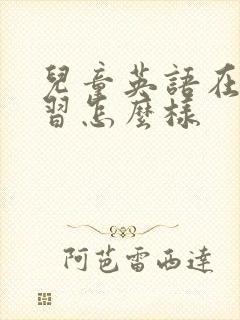 兒童英語在
習怎麼樣
阿芭雷西達